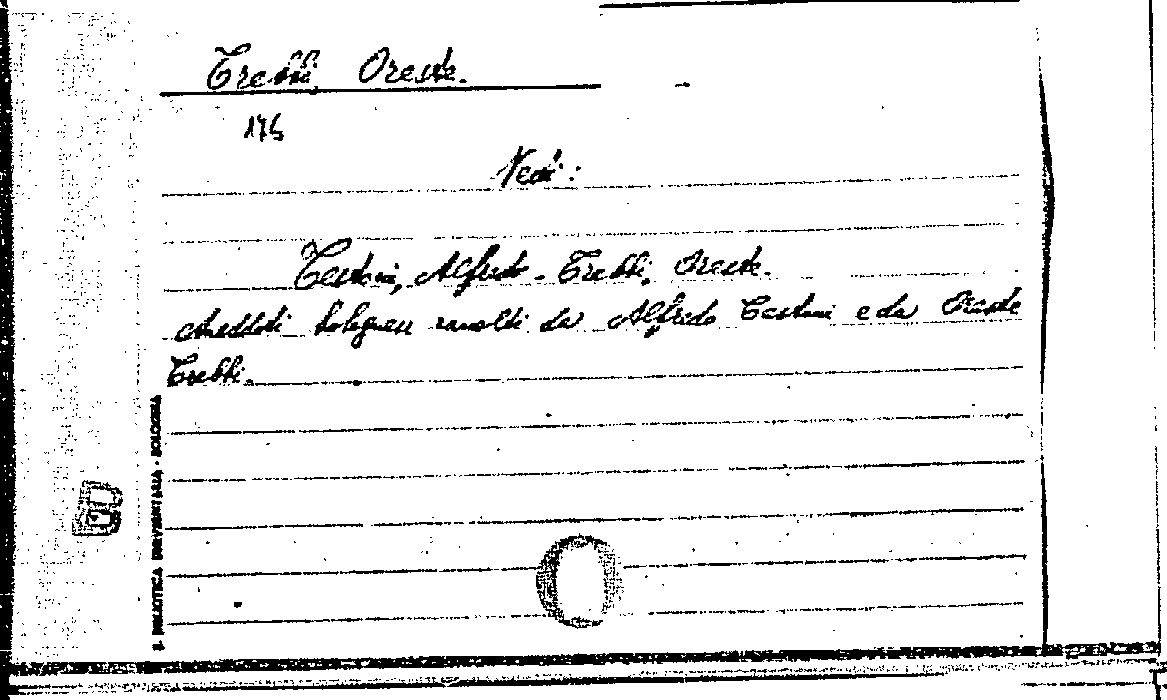 Trebbi, Oreste.
176
Vedi:
Testoni, Alfredo - Trebbi, Oreste.
Aneddoti bolognesi raccolti da Alfredo Testoni e da Oreste
Trebbi.
B. BIBLIOTICA UNIVERSITARIA - BOLOGNA
B